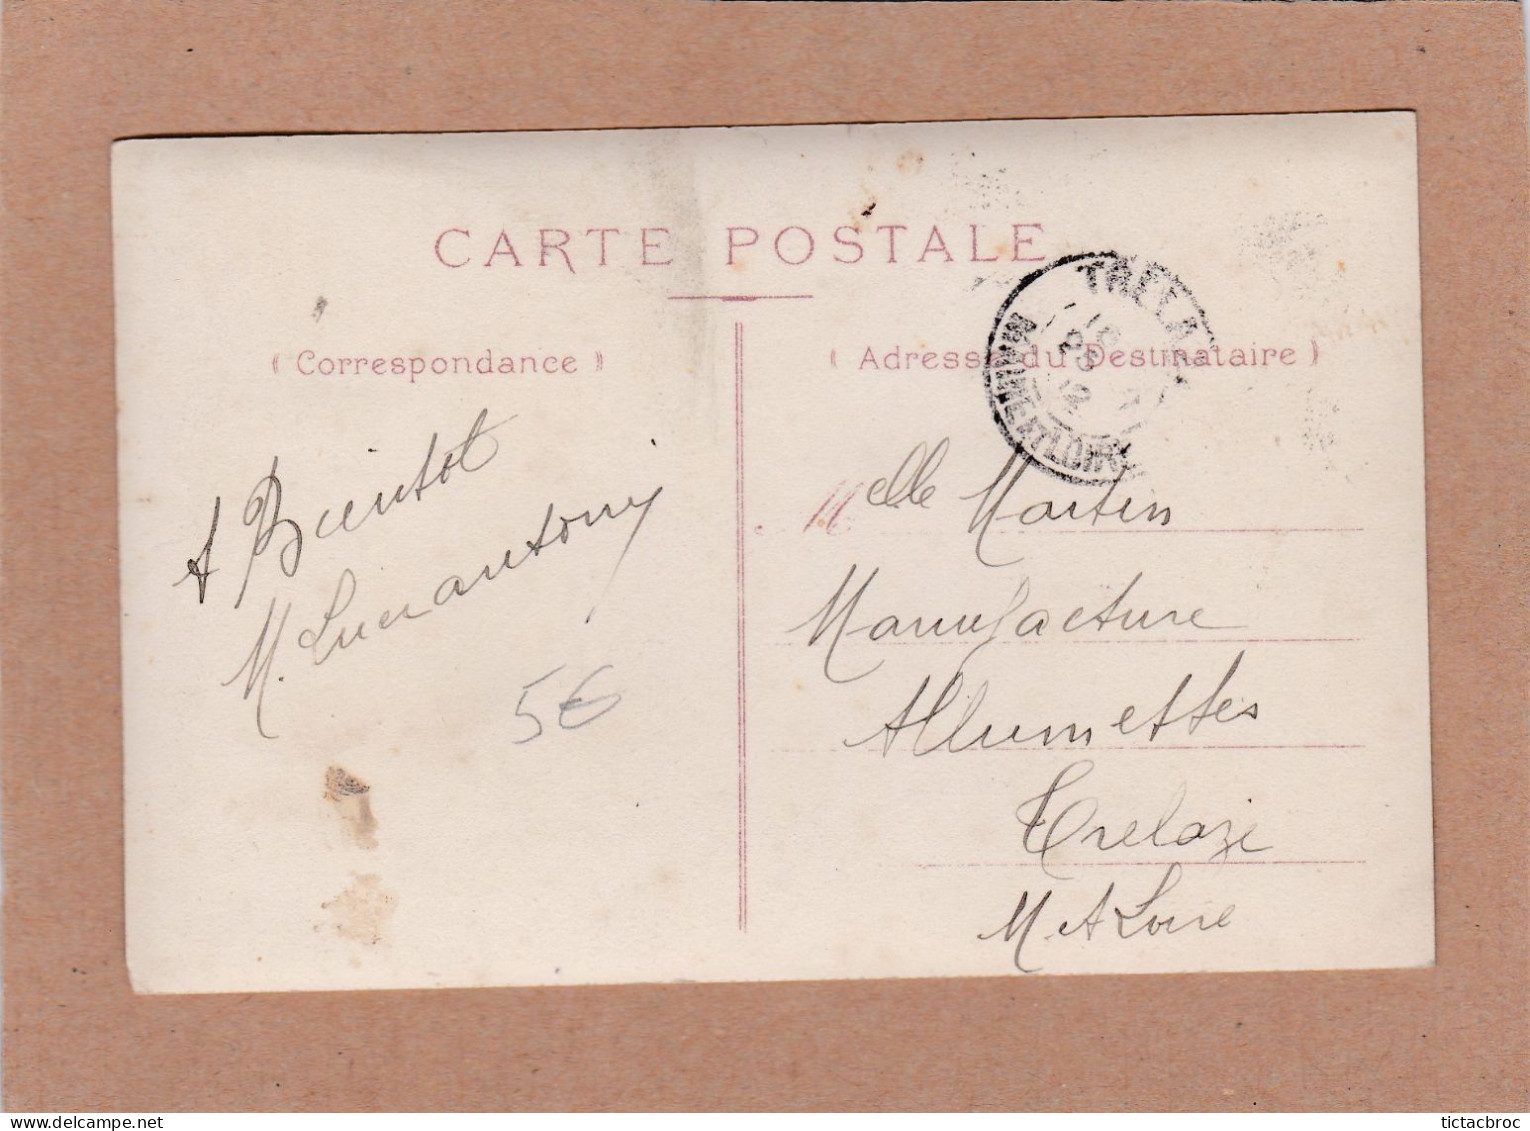 CARTE POSTALE
( Correspondance )
( Adresse du Destinataire )
TRELAZ
MAINE ET LOIRE
A Bientot
M.
5€
Melle Martin
Manufacture
Allumettes
Trelaze
M et Loire
tictacbroc